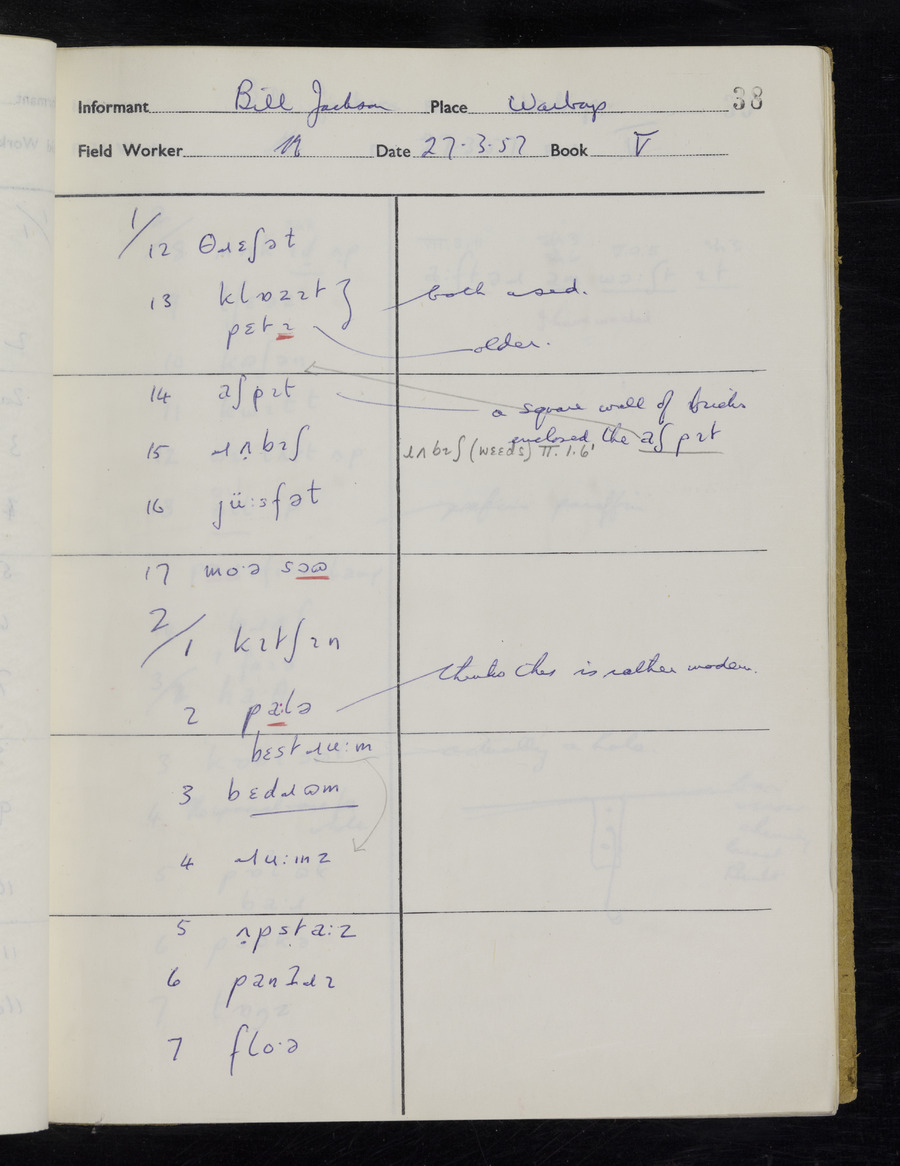 Informant Bill Jackson Place Warboys 38
Field Worker Date 27.3.57 Book V
1/12 θɹɛʃət
13 klɒzɪt } both used.
pɛtɪ older.
14 aʃpɪt a square wall of bricks
enclosed the aʃpɪt
15 ɹʌbɪʃ ɹʌbɪʃ (wɛɛds) II.1.6'
16 jü:sfət
17 mo·ə sɔω
2/1 kɪtʃɪn
2 pa:lə thinks this is rather modern.
bɛst ɹu:m
3 bɛdɹωm
4 ɹu:mz
5 ʌpsta:z
6 panIɹɪ
7 flo·ə